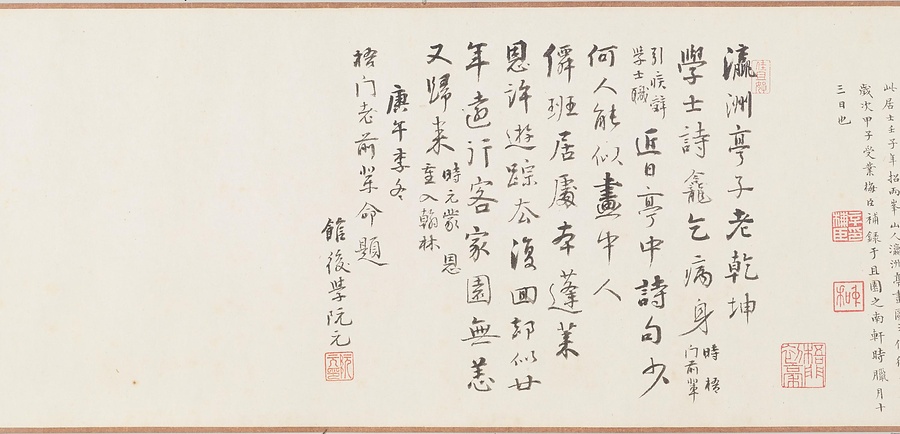 此居士壬子年招兩峯山人瀛洲亭畫圖
歲次甲子受業梅臣補錄于且園之南軒時臘月十
三日也
瀛洲亭子老乾坤
學士詩龕乞病身時梧
門前輩
引疾辭
學士職近日亭中詩句少
何人能似畫中人
僊班居處本蓬萊
恩許遊踪去復回却似廿
年遠行客家園無恙
又歸来時元蒙恩
重入翰林
庚午季冬
梧门老前輩命題
館後學阮元